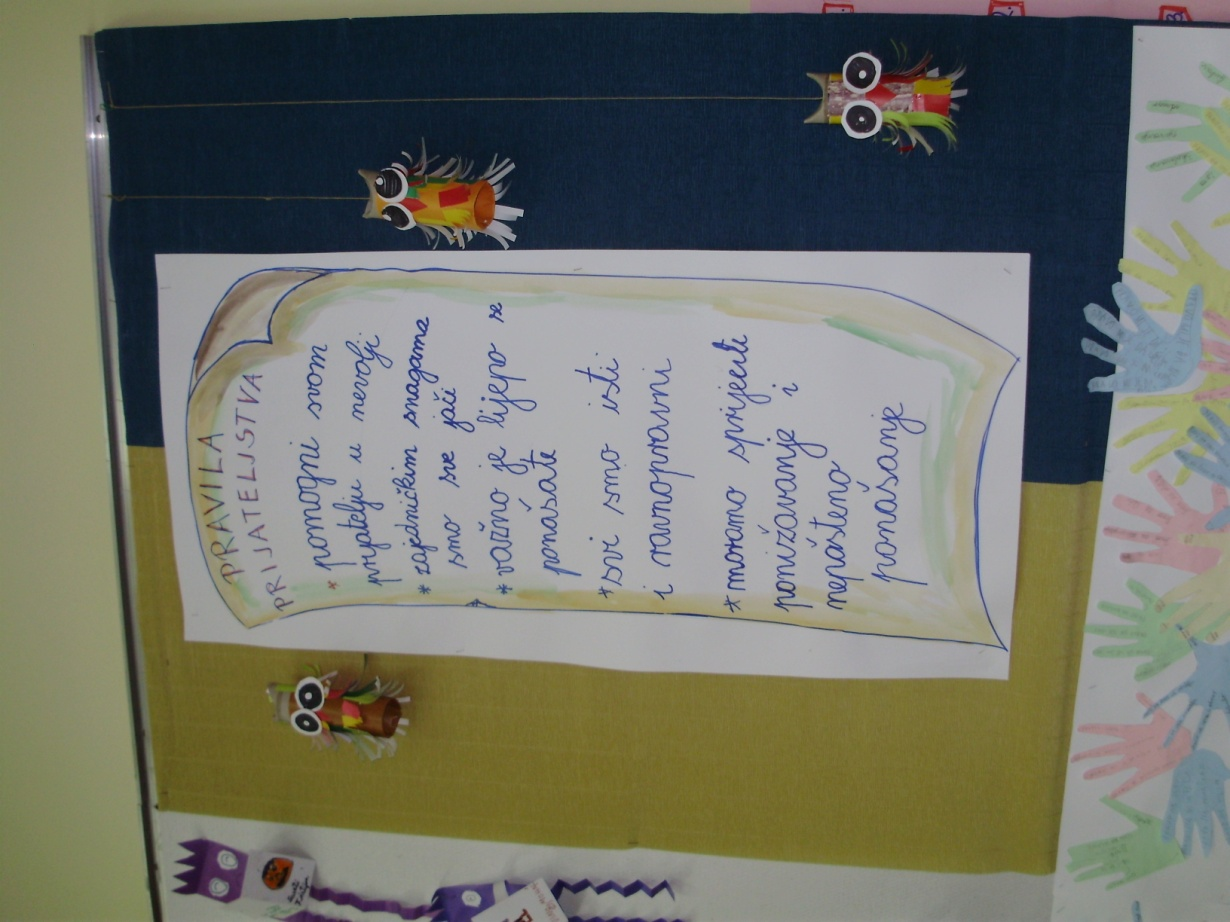 PRAVILA
PRIJATELJSTVA
* pomogni svom
prijatelju u nevolji
* zajedničkim snagama
smo sve jači
* važno je lijepo se
ponašate
* svi smo isti
i ravnopravni
* moramo spriječiti
ponižavanje i
nepošteno
ponašanje